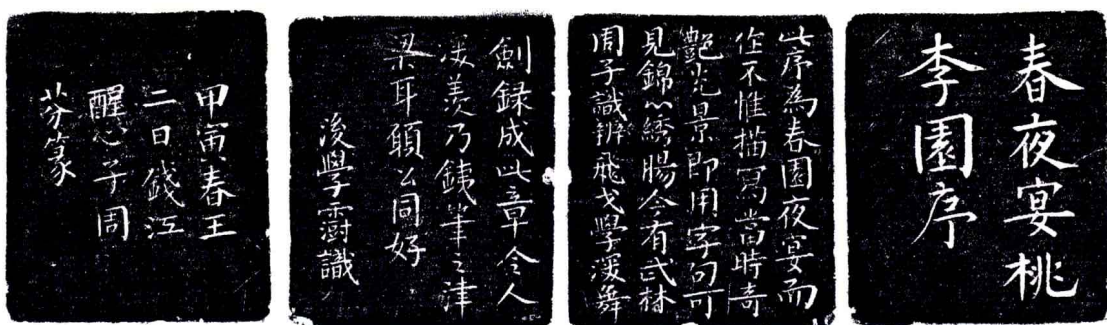 春夜宴桃
李園序
此序為春園夜宴而
作不惟描寫當時奇
艷光景即用字句可
見錦心繡腸今有武林
周子識辨飛戈學深舞
劍録成此章令人
淩羡乃銕筆之津
梁耳願公同好
後學澍識
甲寅春王
二日錢江
醒心子周
芬篆